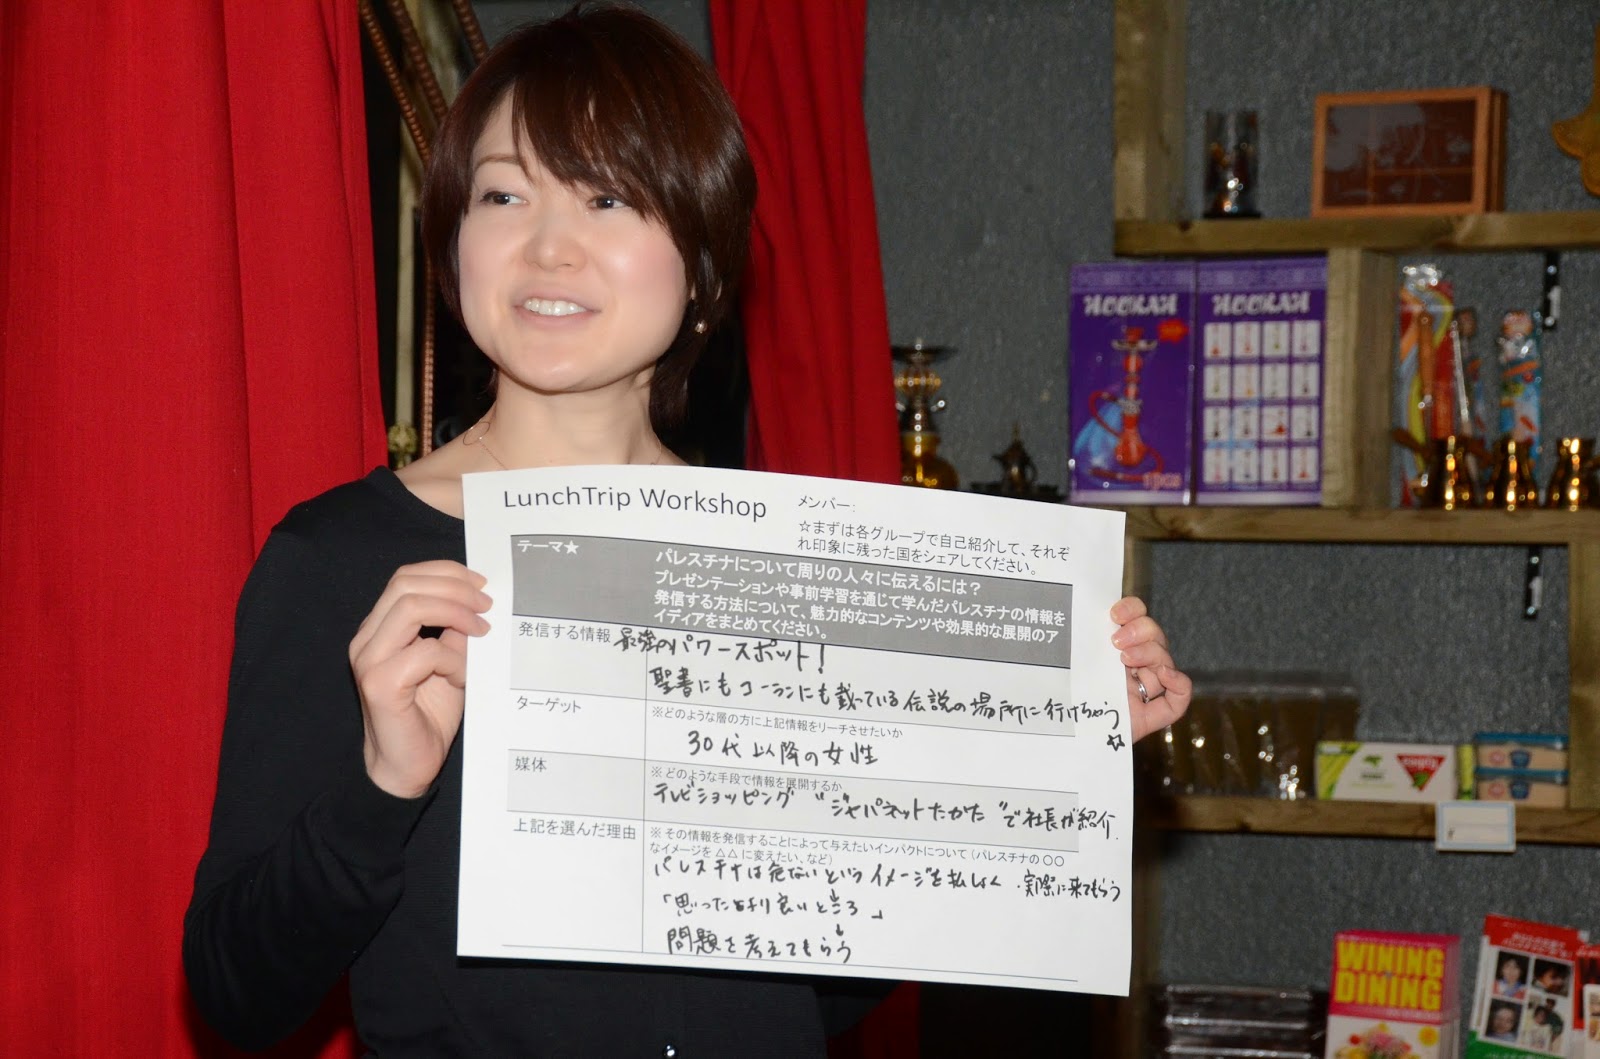 LunchTrip Workshop
メンバー:
☆まずは各グループで自己紹介して、それぞ
れ印象に残った国をシェアしてください。
テーマ★
パレスチナについて周りの人々に伝えるには？
プレゼンテーションや事前学習を通じて学んだパレスチナの情報を
発信する方法について、魅力的なコンテンツや効果的な展開のア
イディアをまとめてください。
発信する情報
最強のパワースポット！
聖書にもコーランにも載っている伝説の場所に行けちゃう☆
ターゲット
※どのような層の方に上記情報をリーチさせたいか
30代以降の女性
媒体
※どのような手段で情報を展開するか
テレビショッピング "ジャパネットたかた"で社長が紹介.
上記を選んだ理由
※その情報を発信することによって与えたいインパクトについて（パレスチナの〇〇
なイメージを△△に変えたい、など）
パレスチナは危ないというイメージを払しょく・実際に来てもらう
「思ったより良いところ」
↓
問題を考えてもらう
HOOKAH
HOOKAH
1PCS
WINING
DINING